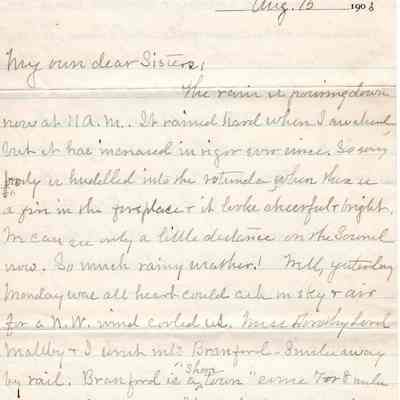 Aug. 15 1903
My own dear Sisters,
The rain is pouring down
now at 11 A.M. It rained hard when I awakened
but it has increased in vigor ever since. So every
body is huddled into the rotunda when there is
a fire in the fireplace & it looks cheerful & bright.
We can see only a little distance on the Sound
now. So much rainy weather! Well, yesterday
Monday was all heart could ask in sky & air
for a N.W. wind cooled us. Miss Dorothy Lord
Maltby & I went into Branford - 8 miles away
by rail. Branford is a "Shop town" some 7 or 8